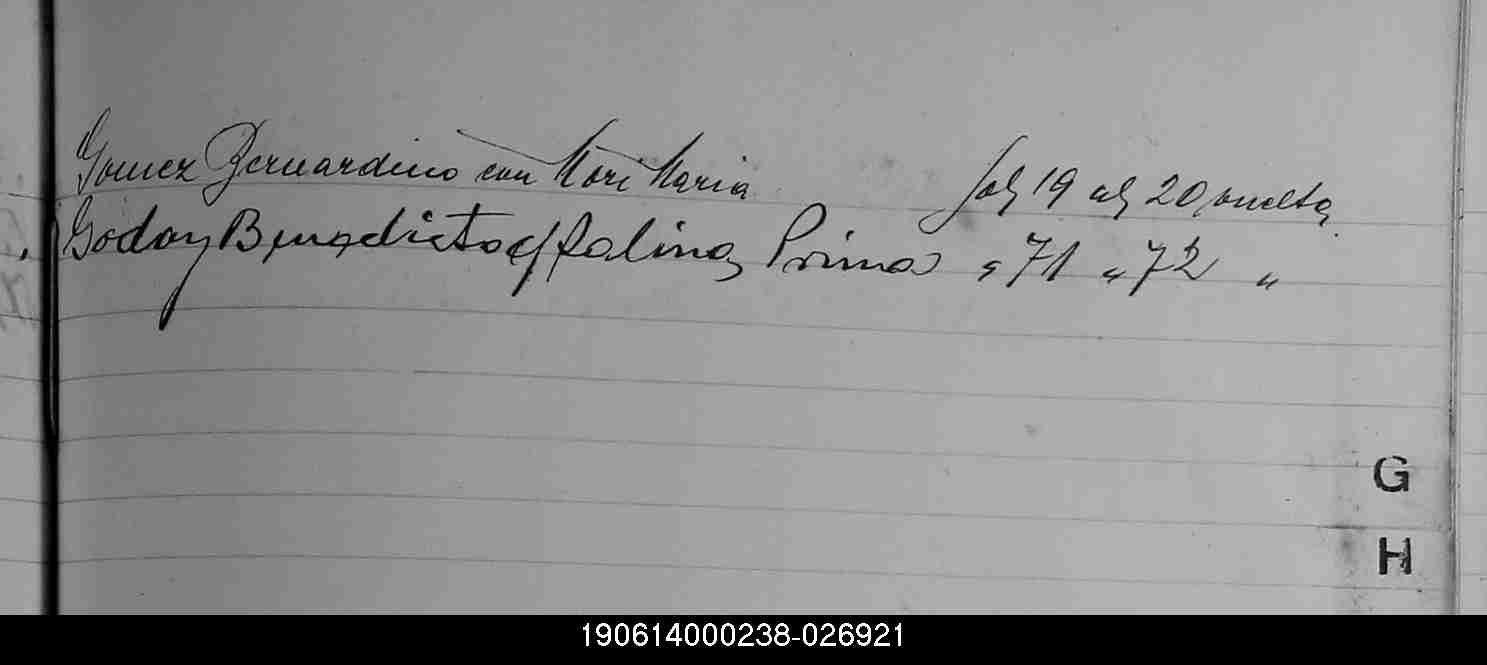 Gomez Bernardino con Mori Maria fol 19 al 20 vuelta
Godoy Benedicto c/ Salina, Prima " 71 " 72 "
G
H
190614000238-026921